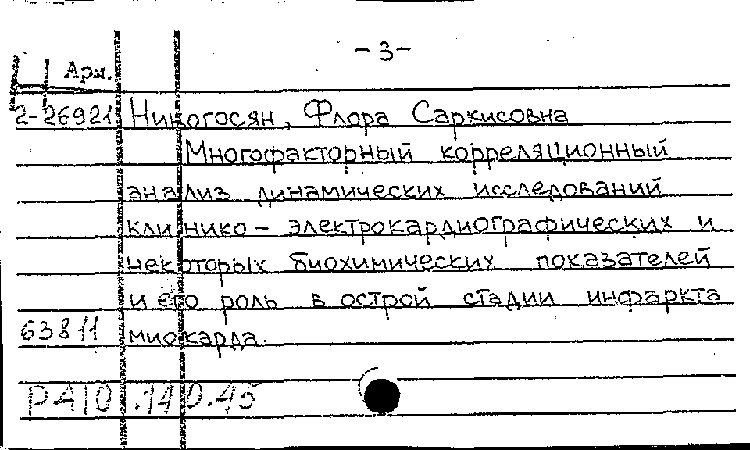 -3-
Арм.
2-26921 Никогосян, Флора Саркисовна
Многофакторный корреляционный
анализ динамических исследований
клинико - электрокардиографических и
некоторых биохимических показателей
и его роль в острой стадии инфаркта
63811 миокарда.
РА10.140.45